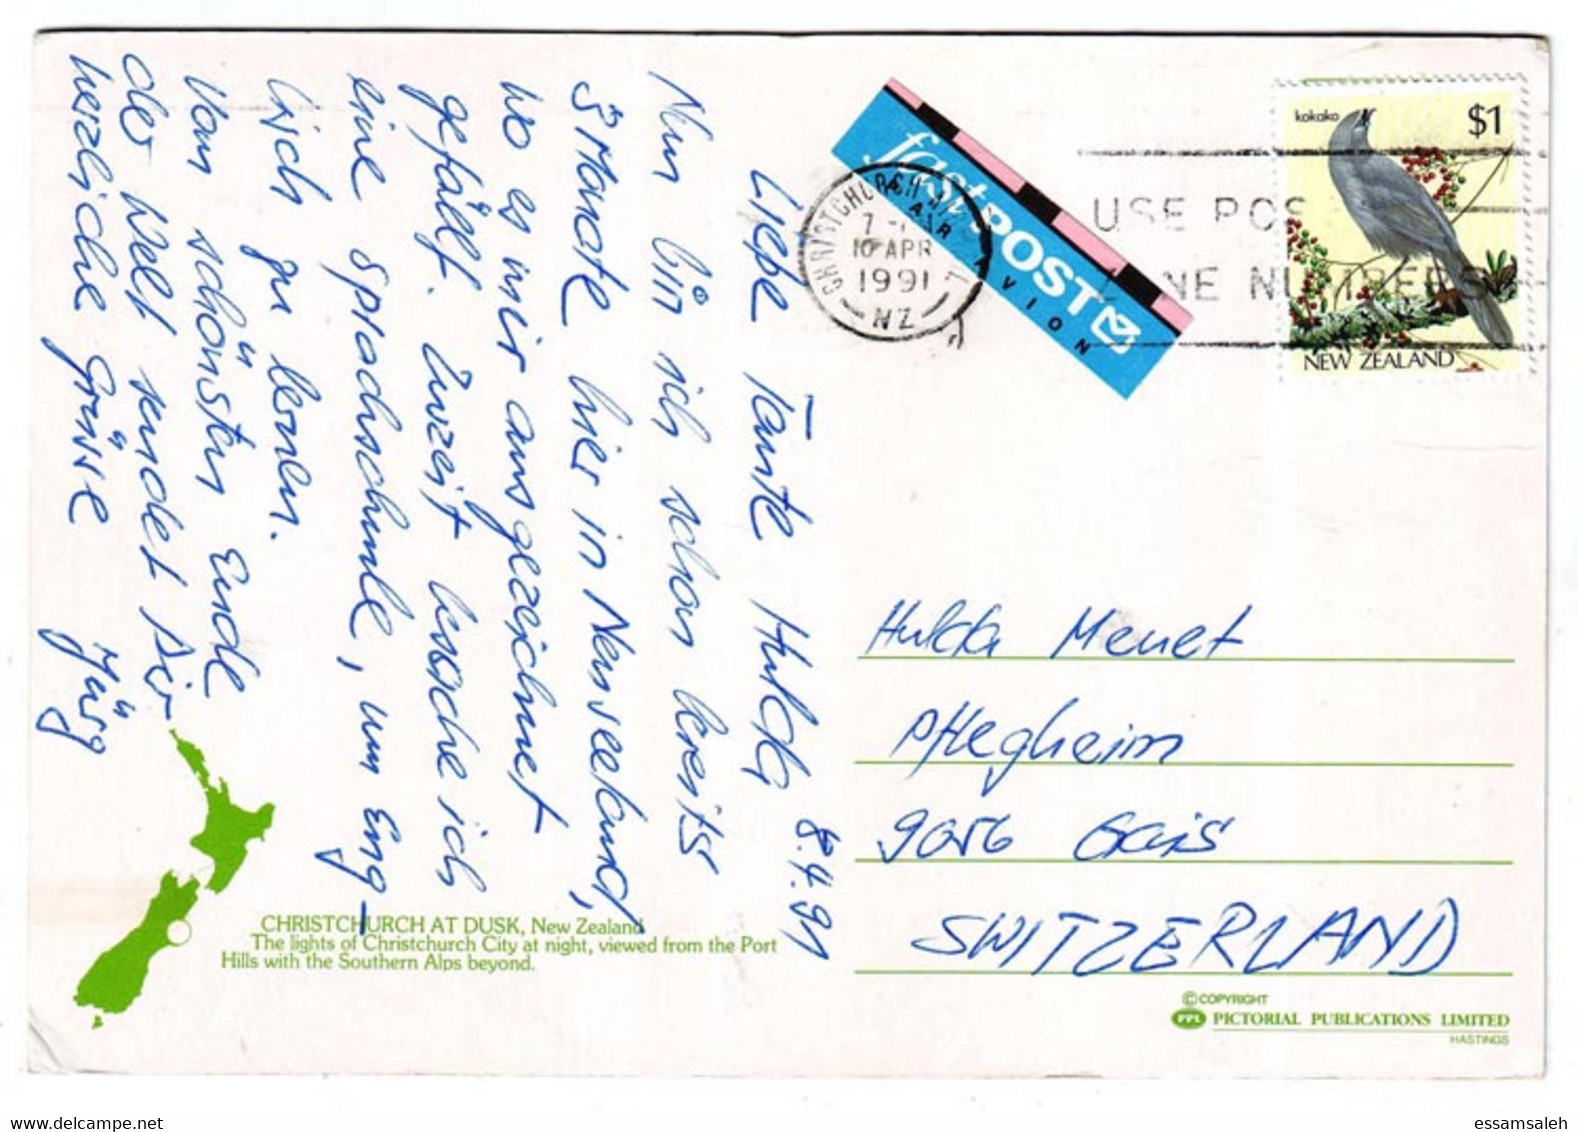 Liebe Tante Hulda 8.4.91
Nun bin ich schon bereits
3 Monate hier in Neuseeland,
wo es mir ausgezeichnet
gefällt. Zurzeit besuche ich
eine Sprachschule, um Eng-
lisch zu lernen.
Vom schönsten Ende
der Welt sendet Dir
herzliche Grüsse
Jürg
fast POST
PAR AVION
CHRISTCHURCH
10 APR
1991
NZ
USE POS
NE NUMBERS
kokako
$1
NEW ZEALAND
Hulda Menet
Pflegheim
9056 Gais
SWITZERLAND
CHRISTCHURCH AT DUSK, New Zealand
The lights of Christchurch City at night, viewed from the Port
Hills with the Southern Alps beyond.
© COPYRIGHT
PPL PICTORIAL PUBLICATIONS LIMITED
HASTINGS
essamsaleh